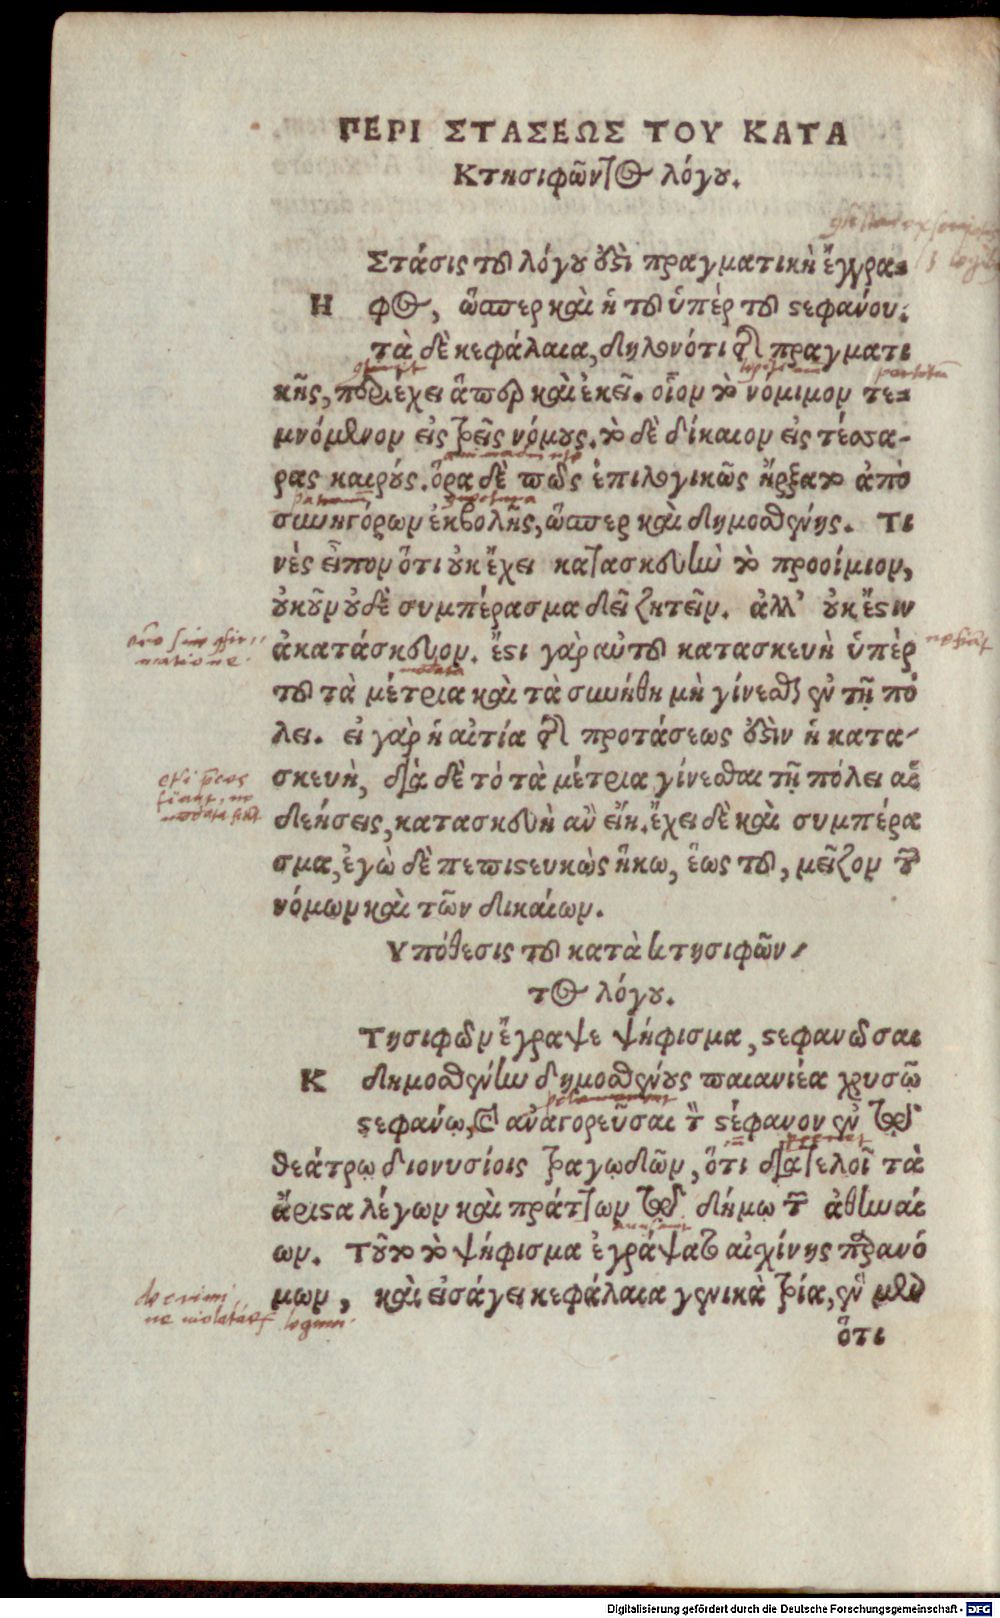 ΠΕΡΙ ΣΤΑΣΕΩΣ ΤΟΥ ΚΑΤΑ
Κτησιφῶντος λόγου.
Στάσις τοῦ λόγου ἐστὶ πραγματικὴ ἔγγρα-
Η φος, ὥσπερ καὶ ἡ τοῦ ὑπὲρ τοῦ στεφάνου.
τὰ δὲ κεφάλαια, δηλονότι τῆς πραγματι
κῆς, περιέχει ἅπερ καὶ ἐκεῖ. οἷον τὸ νόμιμον τε-
μνόμενον εἰς τρεῖς νόμους. τὸ δὲ δίκαιον εἰς τέσσα-
ρας καιρούς. ὅρα δὲ πῶς ἐπιλογικῶς ἤρξατο ἀπὸ
συνηγόρων ἐκβολῆς, ὥσπερ καὶ δημοσθένης. Τι
νὲς εἶπον ὅτι οὐκ ἔχει κατασκευὴν τὸ προοίμιον,
οὐκοῦν οὐδὲ συμπέρασμα δεῖ ζητεῖν. ἀλλ’ οὐκ ἔστιν
ἀκατάσκευον. ἔστι γὰρ αὐτοῦ κατασκευὴ ὑπὲρ
τοῦ τὰ μέτρια καὶ τὰ συνήθη μὴ γίνεσθαι ἐν τῇ πό
λει. εἰ γὰρ ἡ αἰτία τῆς προτάσεως ἐστὶν ἡ κατα-
σκευὴ, διὰ δὲ τὸ τὰ μέτρια γίνεσθαι τῇ πόλει αἱ
δεήσεις, κατασκευὴ ἂν εἴη. ἔχει δὲ καὶ συμπέρα
σμα, ἐγὼ δὲ πεπιστευκὼς ἥκω, ἕως τοῦ, μεῖζον τῶν
νόμων καὶ τῶν δικαίων.
Υπόθεσις τοῦ κατὰ κτησιφῶν-
τος λόγου.
Τησιφῶν ἔγραψε ψήφισμα, στεφανῶσαι
Κ δημοσθένην δημοσθένους παιανιέα χρυσῷ
στεφάνῳ, καὶ ἀναγορεῦσαι τὸν στέφανον ἐν τῷ
θεάτρῳ διονυσίοις τραγῳδῶν, ὅτι διατελοῖ τὰ
ἄριστα λέγων καὶ πράττων τῷ δήμῳ τῶν ἀθηναί
ων. Τοῦτο τὸ ψήφισμα ἐγράψατο αἰχίνης παρανό
μων, καὶ εἰσάγει κεφάλαια γενικὰ τρία, ἓν μὲν
ὅτι
decrimi
ne violatarum legum.
Digitalisierung gefördert durch die Deutsche Forschungsgemeinschaft - DFG